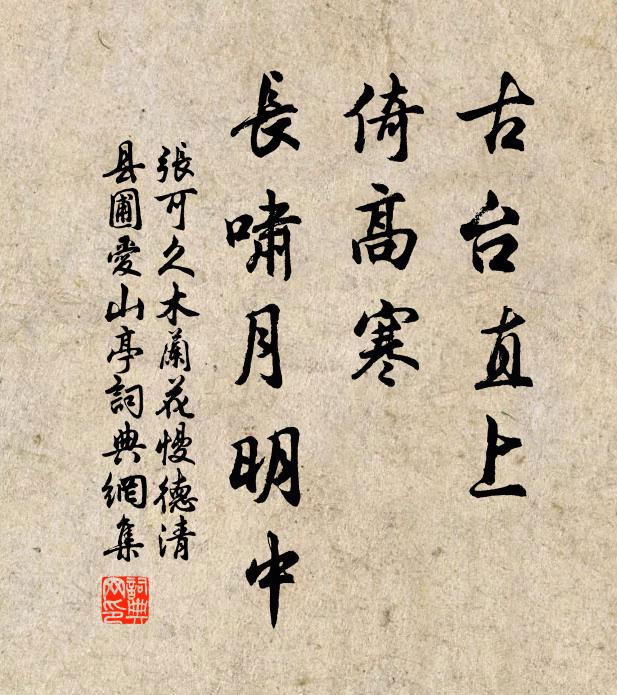 古台直上
倚高寒
長嘯月明中
張可久木蘭花慢德清
县圃愛山亭詞典網集
詞典
网印